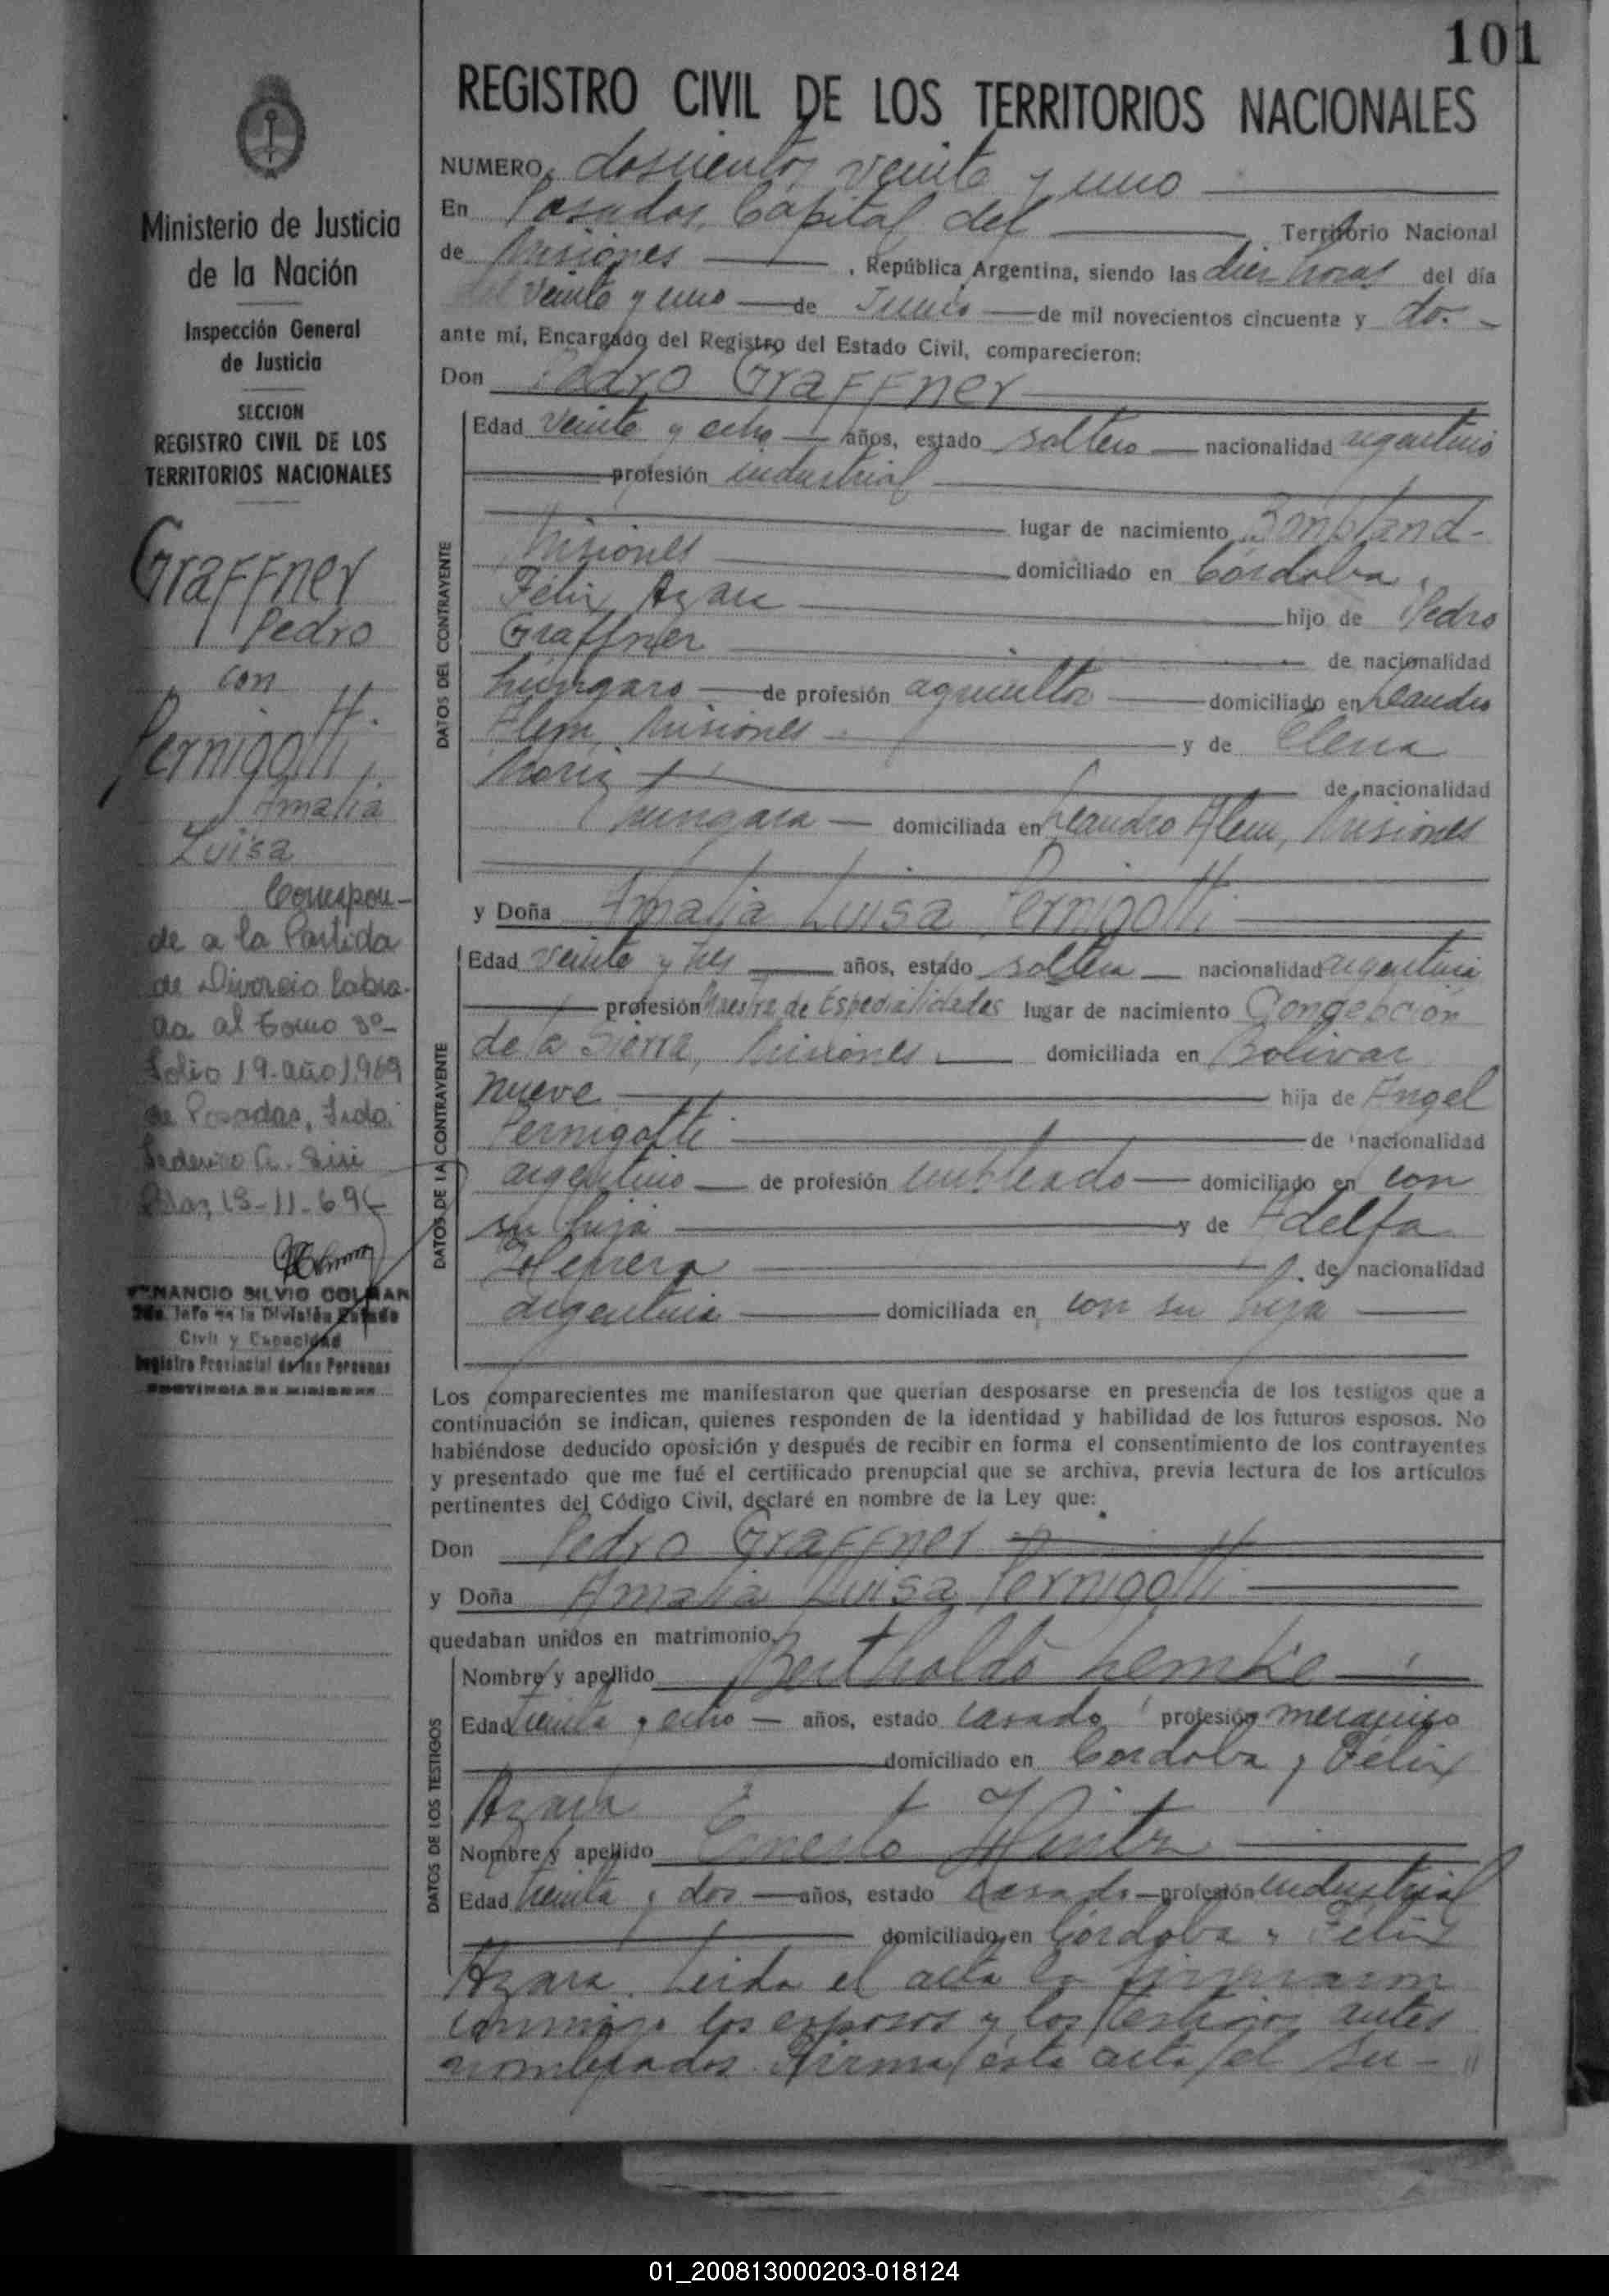 101
REGISTRO CIVIL DE LOS TERRITORIOS NACIONALES
Ministerio de Justicia
de la Nación
Inspección General
de Justicia
SECCION
REGISTRO CIVIL DE LOS
TERRITORIOS NACIONALES
Graffner
Pedro
con
Pernigotti
Amalia
Luisa
Correspon-
de a la Partida
de Divorcio labra-
da al tomo 3º
folio 19 año 1969
de Posadas, Fdo.
Federico A.
13-11-69
VENANCIO SILVIO COLMAN
2do. Jefe de la División Estado
Civil y Capacidad
Registro Provincial de las Personas
PROVINCIA DE MISIONES
NUMERO doscientos veinte y uno
En Posadas, Capital del Territorio Nacional
de Misiones, República Argentina, siendo las diez horas del día
del veinte y uno de Junio de mil novecientos cincuenta y dos
ante mí, Encargado del Registro del Estado Civil, comparecieron:
Don Pedro Graffner
DATOS DEL CONTRAYENTE
Edad veinte y ocho años, estado soltero nacionalidad argentino
profesión industrial
lugar de nacimiento Bompland-
Misiones domiciliado en Córdoba y
Félix Azara hijo de Pedro
Graffner de nacionalidad
húngaro de profesión agricultor domiciliado en Leandro
Alem, Misiones y de Elena
de nacionalidad
húngara domiciliada en Leandro Alem, Misiones
y Doña Amalia Luisa Pernigotti
DATOS DE LA CONTRAYENTE
Edad veinte y tres años, estado soltera nacionalidad argentina
profesión Maestra de Especialidades lugar de nacimiento Concepción
de la Sierra, Misiones domiciliada en Bolivar
nueve hija de Angel
Pernigotti de nacionalidad
argentino de profesión empleado domiciliado en con
su hija y de Adelfa
de nacionalidad
argentina domiciliada en con su hija
Los comparecientes me manifestaron que querían desposarse en presencia de los testigos que a
continuación se indican, quienes responden de la identidad y habilidad de los futuros esposos. No
habiéndose deducido oposición y después de recibir en forma el consentimiento de los contrayentes
y presentado que me fué el certificado prenupcial que se archiva, previa lectura de los artículos
pertinentes del Código Civil, declaré en nombre de la Ley que:
Don Pedro Graffner
y Doña Amalia Luisa Pernigotti
quedaban unidos en matrimonio.
DATOS DE LOS TESTIGOS
Nombre y apellido Bertholdo Lemke
Edad treinta y ocho años, estado casado profesión mecánico
domiciliado en Cordoba y Félix
Azara
Nombre y apellido Ernesto
Edad treinta y dos años, estado casado profesión industrial
domiciliado en Córdoba y Félix
Azara. Leida el acta la firmaron
conmigo los esposos y los testigos antes
nombrados. Firma esta acta el Su-
01_200813000203-018124